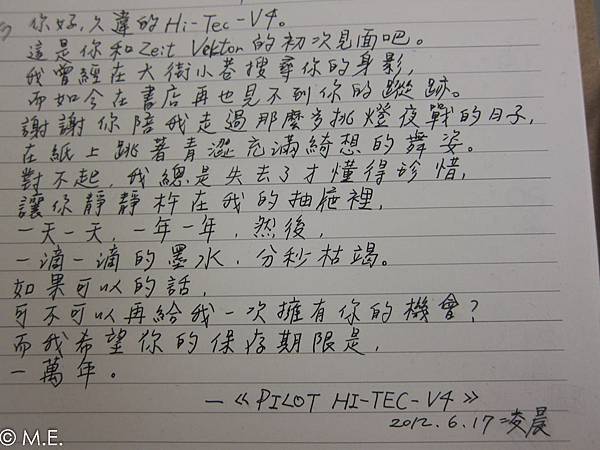 你好，久違的Hi-Tec-V4。
這是你和Zeit Vektor的初次見面吧。
我曾經在大街小巷搜尋你的身影，
而如今在書店再也見不到你的蹤跡。
謝謝你陪我走過那麼多挑燈夜戰的日子，
在紙上跳著青澀充滿綺想的舞姿。
對不起，我總是失去了才懂得珍惜，
讓你靜靜杵在我的抽屜裡，
一天一天，一年一年，然後，
一滴一滴的墨水，分秒枯竭。
如果可以的話，
可不可以再給我一次擁有你的機會？
而我希望你的保存期限是，
一萬年。
—《PILOT HI-TEC-V4》
2012.6.17凌晨
© M.E.